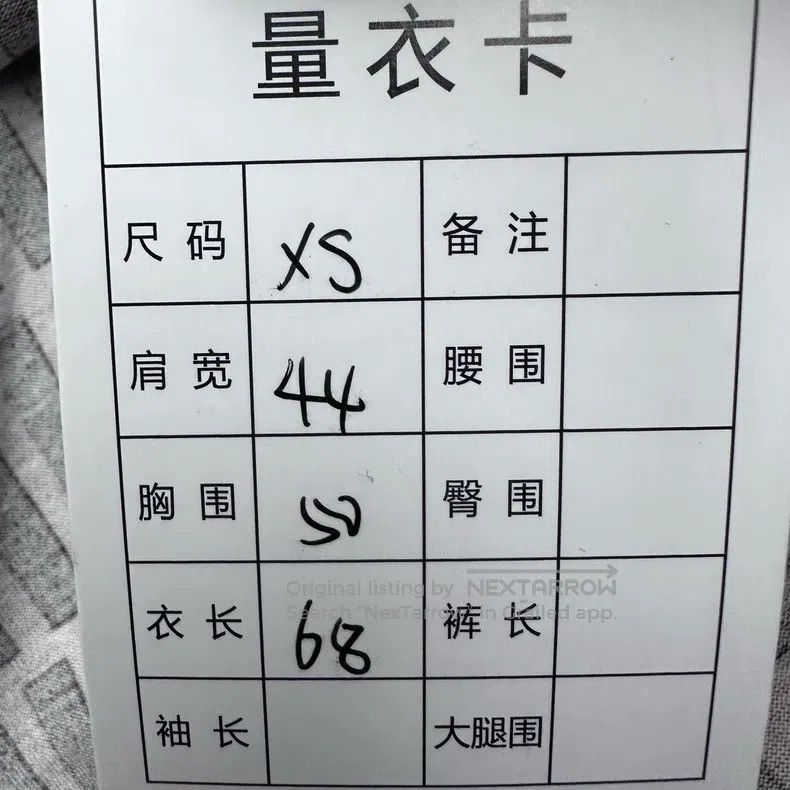 量衣卡
尺码 XS 备注
肩宽 44 腰围
胸围 50 臀围
Original listing by NEXTARROW
Search "NexTarrow" in Grailed app.
衣长 68 裤长
袖长 大腿围